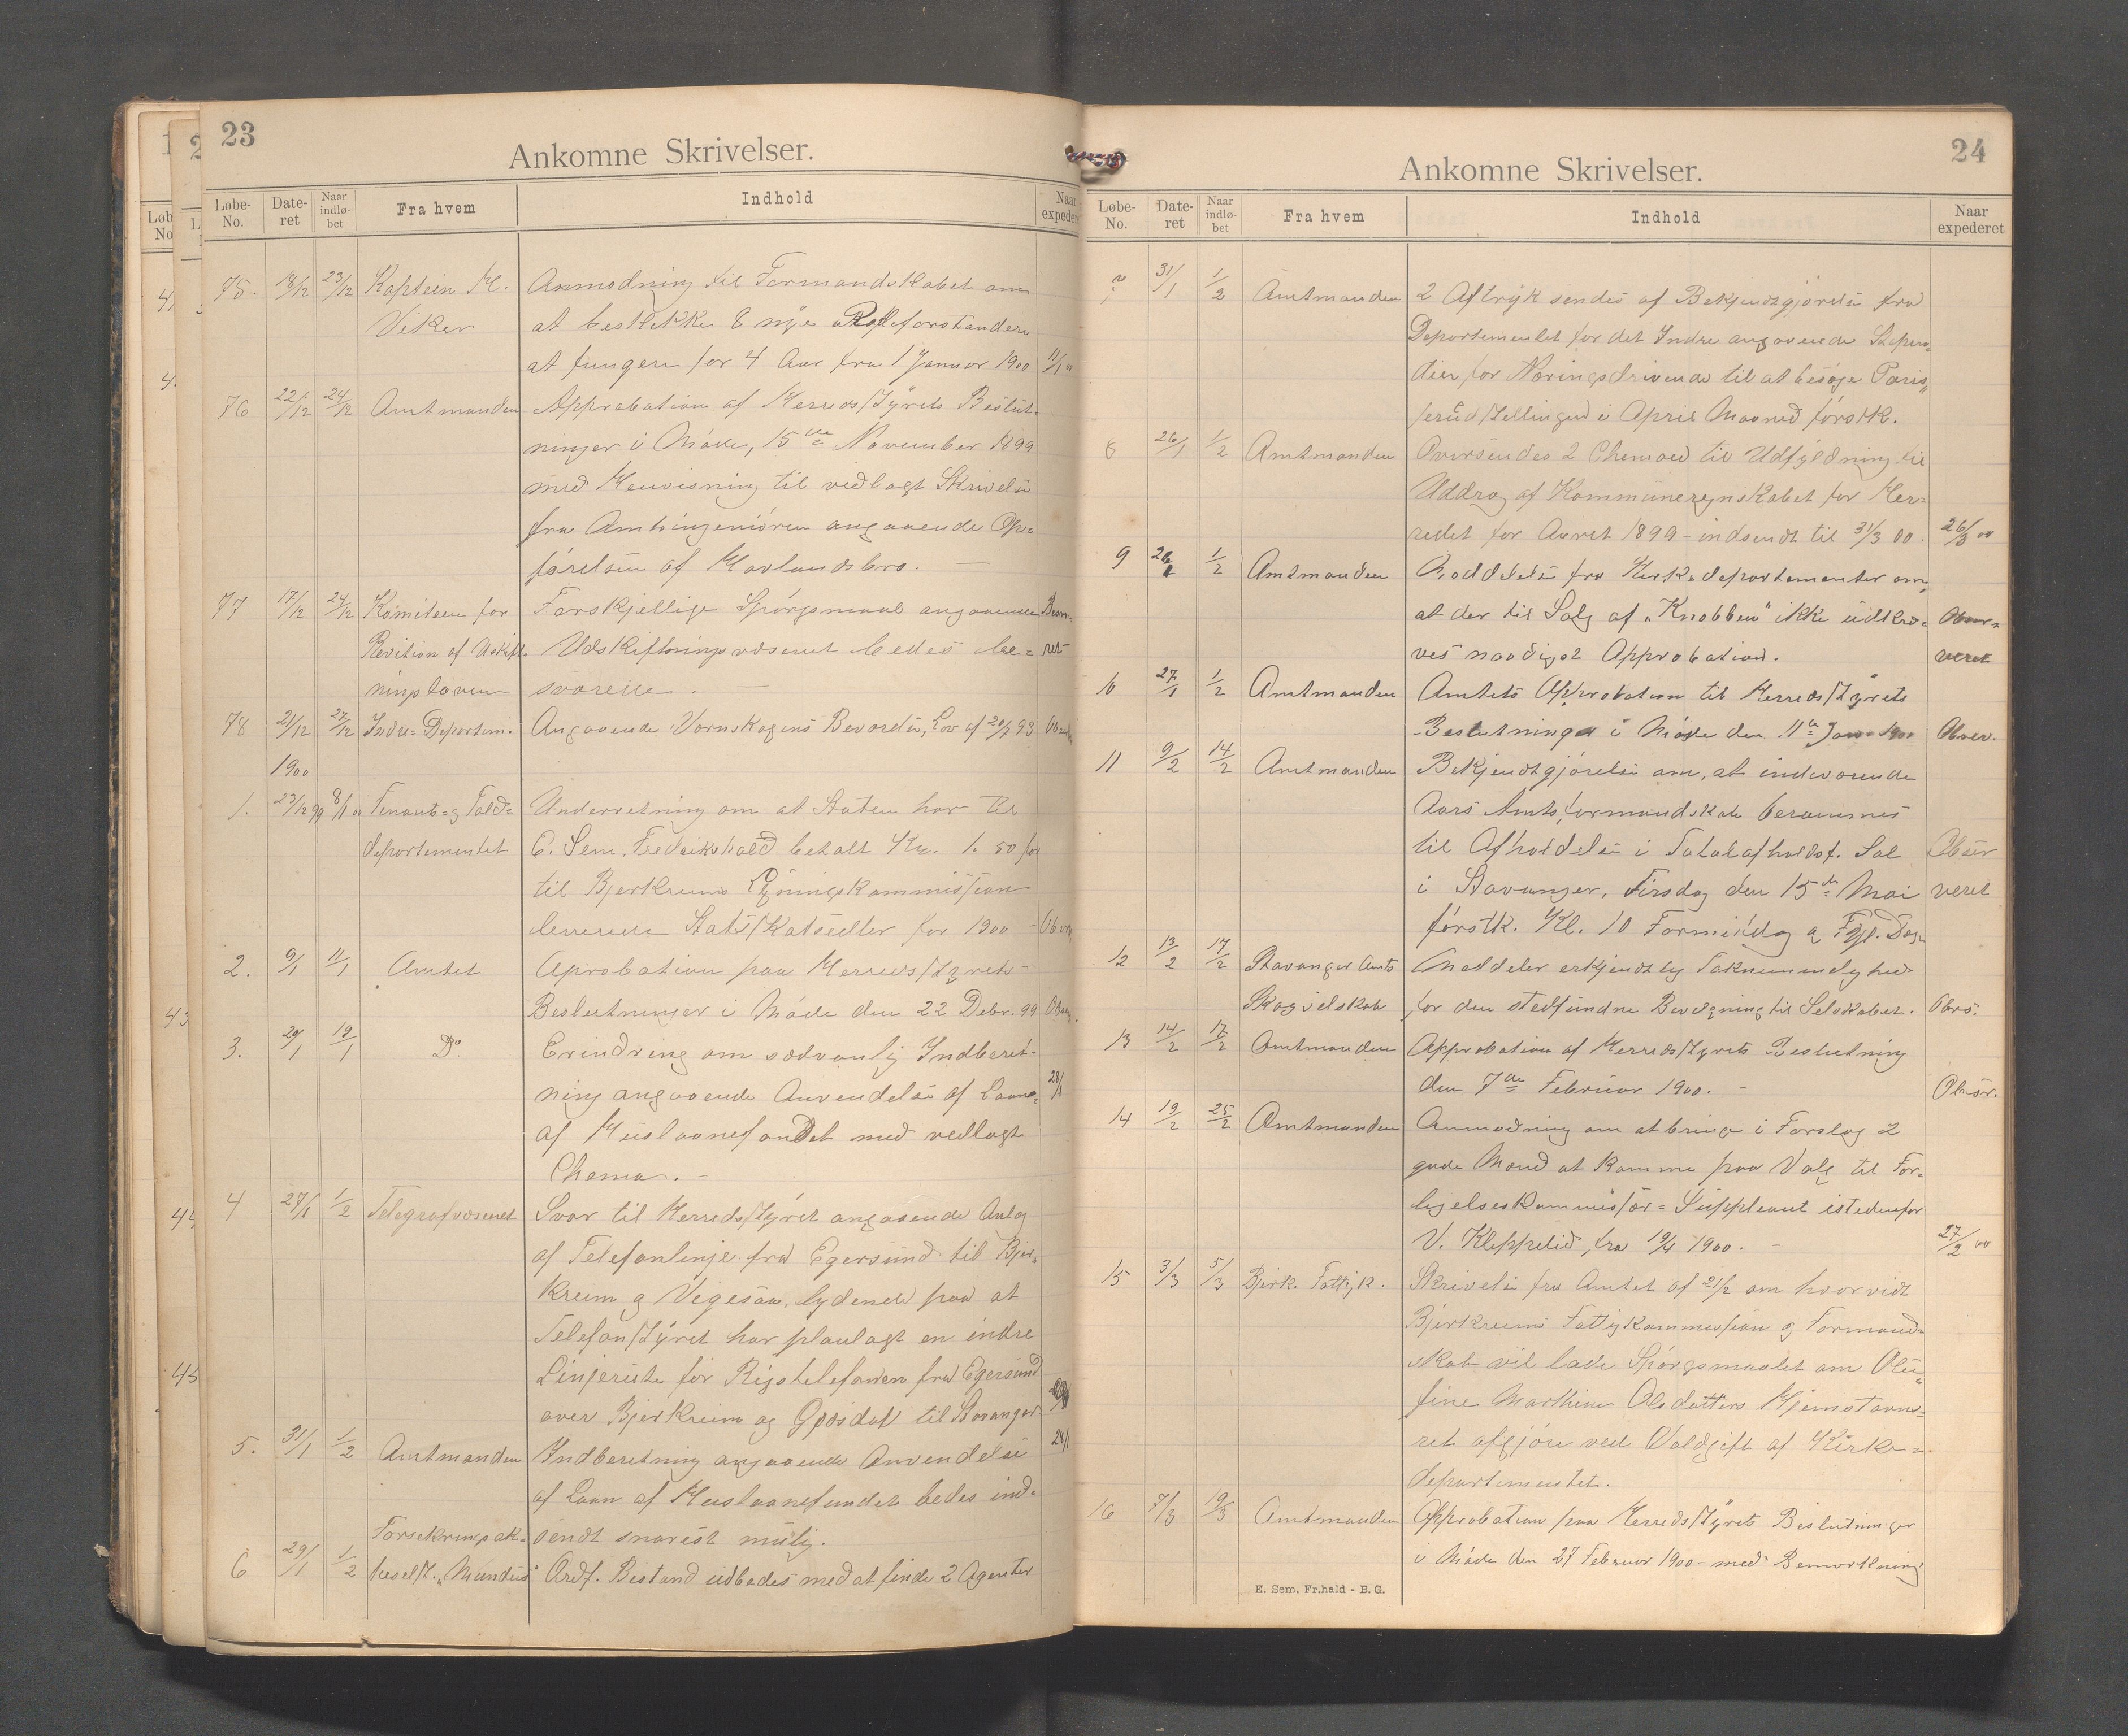 23
Ankomne Skrivelser.
Løbe-No. Dateret Naar indløbet Fra hvem Indhold Naar expederet
75. 18/12 23/12 Kaptein H. Anmodning til Formandskabet om
Viker at beskikke 8 nye Rodeforstandere
at fungere for 4 Aar fra 1 Januar 1900 11/1 00
76 22/12 24/12 Amtmanden Approbation af Herredsstyrets Beslut-
ninger i Møde, 15de November 1899
med Henvisning til vedlagt Skrivelse
fra Amtsingeniøren angaaende Op-
førelsen af Havlandsbro.
77 17/12 24/12 Komiteen for Forskjellige Spørgsmaal angaaende
Revition af Uskift- Udskiftningsvæsenet bedes be-
ningsloven svarede.
78 21/12 27/12 Indre-Departem. Angaaende Vernskogens Bevarelse, Lov af 20/7 93
1900
1. 23/12 99 8/1 00 Finants- og Told- Underretning om at Staten har til
departementet E. Sem, Fredrikshald betalt Kr. 1.50 for
til Bjerkreims Ligningskommission
leverede Statsskatsedler for 1900
2. 9/1 11/1 Amtet Aprobation paa Herredsstyrets
Beslutninger i Møde den 22 Debr. 99
3. 29/1 19/1 Do. Erindring om sædvanlig Indberet-
ning angaaende Anvendelse af Laane- 28/1
af Huslaanefondet med vedlagt
Chema.
4 27/1 1/2 Telegrafvæsenet Svar til Herredsstyret angaaende Anlæg
af Telefonlinje fra Egersund til Bjer-
kreim og Vigesaa, lydende paa at
Telefonstyret har planlagt en indre
Linjerute for Rigstelefonen fra Egersund
over Bjerkreim og Gjesdal til Stavanger
5. 31/1 1/2 Amtmanden Indberetning angaaende Anvendelse 28/1
af Laan af Huslaanefondet bedes ind-
Forsikringsak- sendt snarest mulig.
6 29/1 1/2 tieselsk. „Mundus" Ærdf. Bistand udbedes med at finde 2 Agenter
24
Ankomne Skrivelser.
Løbe-No. Dateret Naar indløbet Fra hvem Indhold Naar expederet
7 31/1 1/2 Amtmanden 2 Aftryk sendes af Bekjendtgjørelse fra
Departementet for det Indre angaaende Stipen-
dier for Næringsdrivende til at besøge Paris-
erudstillingen i April Maaned førstk.
8 26/1 1/2 Amtmanden Oversendes 2 Chemaer til Udfyldning til
Uddrag af Kommuneregnskabet for Her-
redet for Aaret 1899 - indsendt til 31/3 00. 26/3 00
9 26/1 1/2 Amtmanden Meddelelse fra Kirkedepartementet om,
at der til Salg af „Knobben" ikke udkræ- Obser-
ves naadigst Approbation. veret
10 27/1 1/2 Amtmanden Amtets Approbation til Herredsstyrets
Beslutninger i Møde den 11te Jan. 1900 Obser.
11 9/2 14/2 Amtmanden Bekjendtgjørelse om, at indeværende
Aars Amtsformandskab berammes
til Afholdelse i Totalafholdsf. Sal Obser
i Stavanger, Tirsdag den 15de Mai veret
førstk. Kl. 10 Formiddag og Følg. Dag.
12 13/2 17/2 Stavanger Amts Meddeler erkjendtlig Taknemmelighed
Skogselskab for den stedfundne Bevilgning til Selskabet. Obs.
13 14/2 17/2 Amtmanden Approbation af Herredsstyrets Beslutning
den 7de Februar 1900. Obser.
14 19/2 25/2 Amtmanden Anmodning om at bringe i Forslag 2
gode Mænd at komme paa Valg til For-
ligelseskommissær-Suppleant istedenfor
V. Kleppelid, fra 19/4 1900. 27/2 00
15 3/3 5/3 Bjerk. Fattigk. Skrivelse fra Amtet af 21/2 om hvorvidt
Bjerkreims Fattigkommission og Formand-
skab vil lade Spørgsmaalet om Ole-
fine Marthine Olsdatters Hjemstavns-
ret afgjøre ved Voldgift af Kirke-
departementet.
16 7/3 19/3 Amtmanden Approbation paa Herredsstyrets Beslutninger
i Møde den 27 Februar 1900 - med Bemærkning
E. Sem, Fr.hald - B.G.